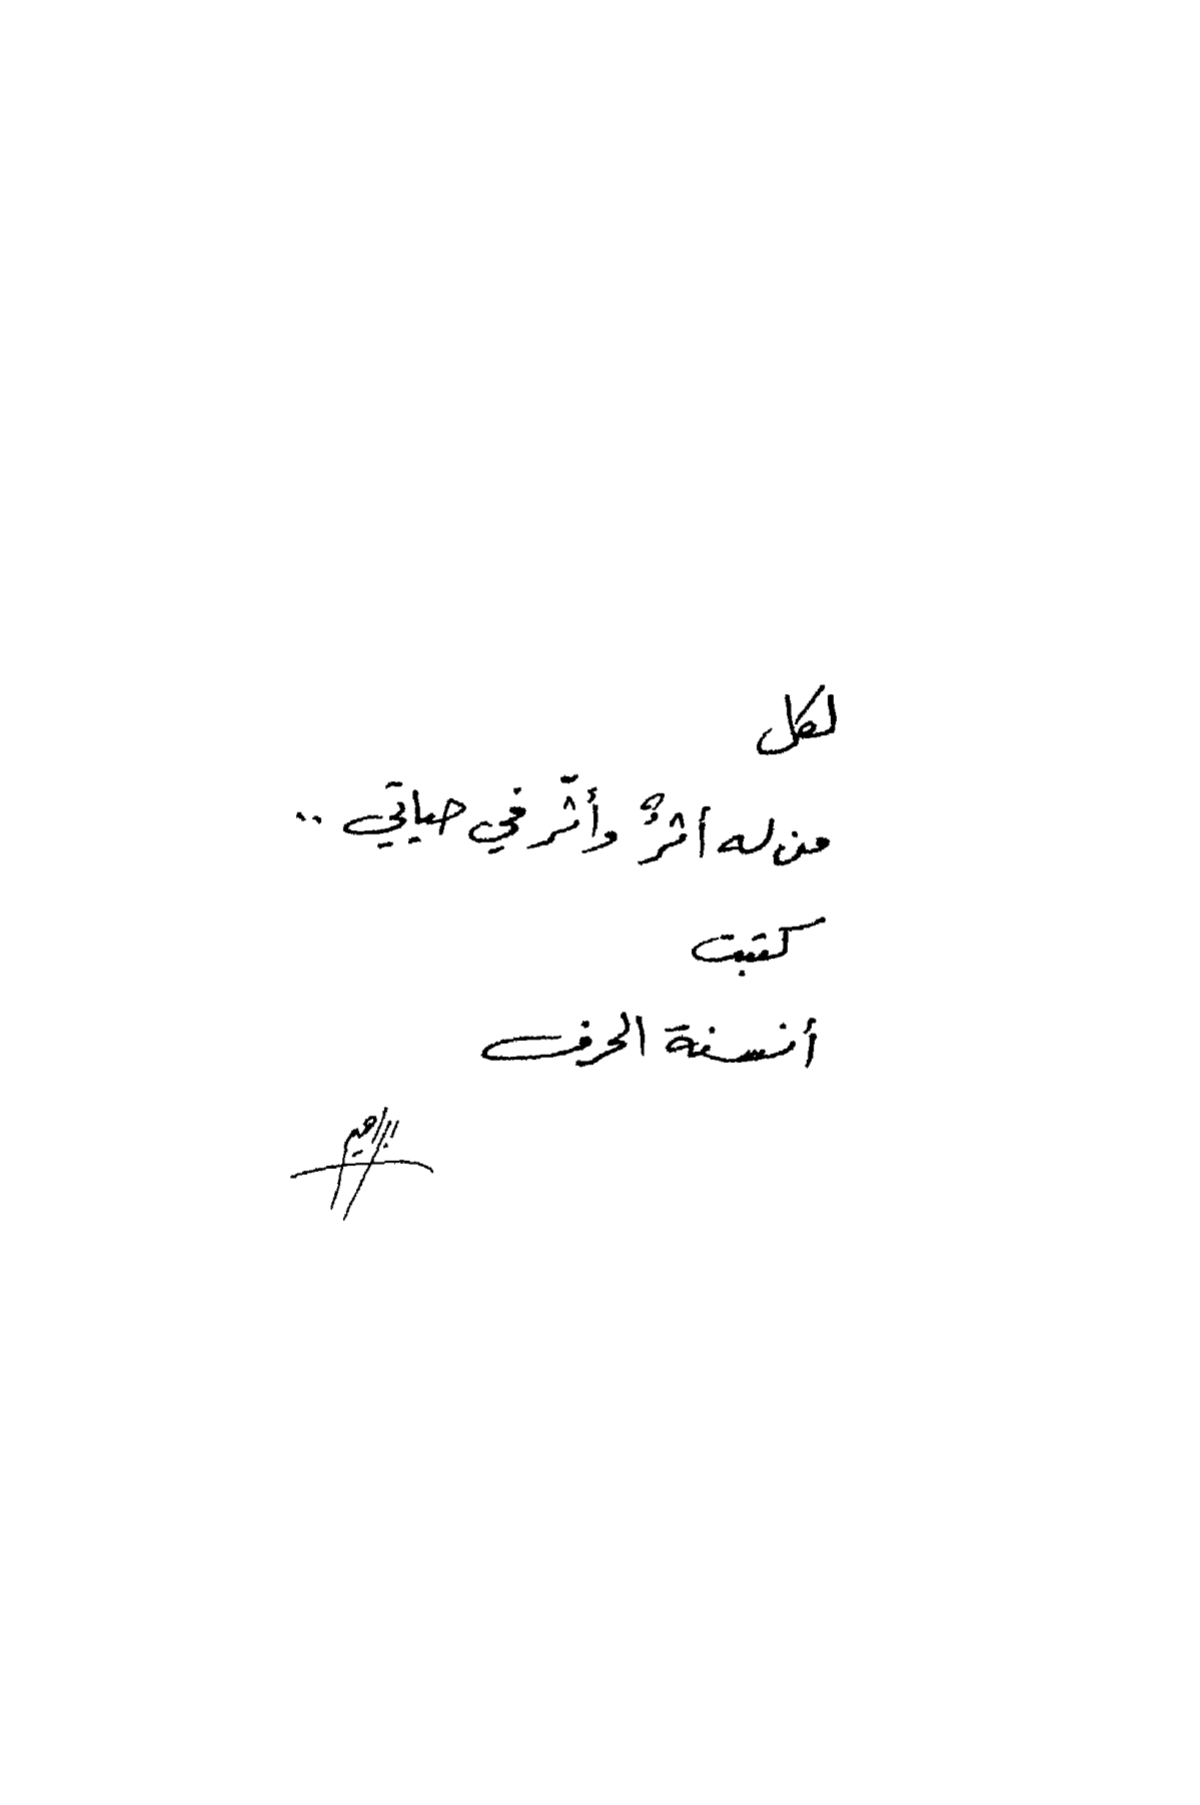 لكل
من له أثرٌ وأثّر في حياتي ..
كتبت
أنسنة الحرف
ابراهيم